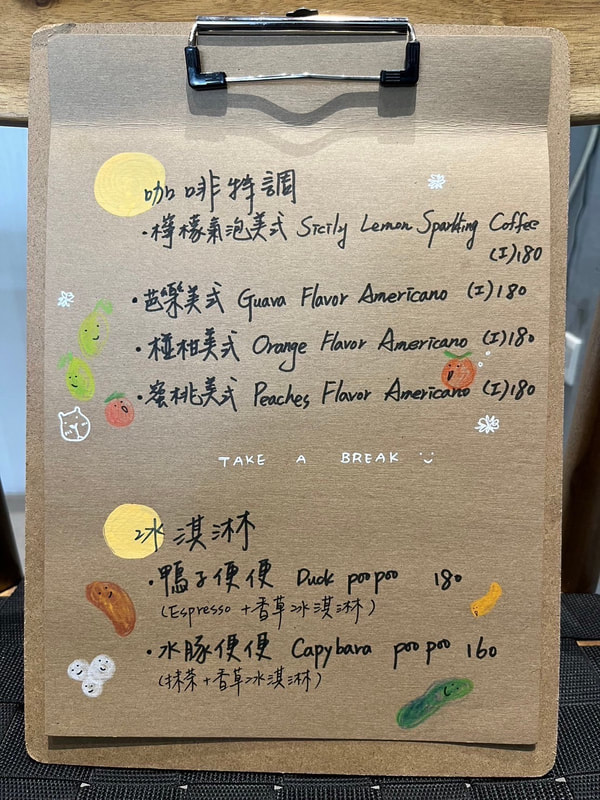 咖啡特調
·檸檬氣泡美式 Sicily Lemon Sparkling Coffee
(I)180
·芭樂美式 Guava Flavor Americano (I)180
·椪柑美式 Orange Flavor Americano (I)180
·蜜桃美式 Peaches Flavor Americano (I)180
TAKE A BREAK
冰淇淋
·鴨子便便 Duck poo poo 180
(Espresso+香草冰淇淋)
·水豚便便 Capybara poo poo 160
(抹茶+香草冰淇淋)